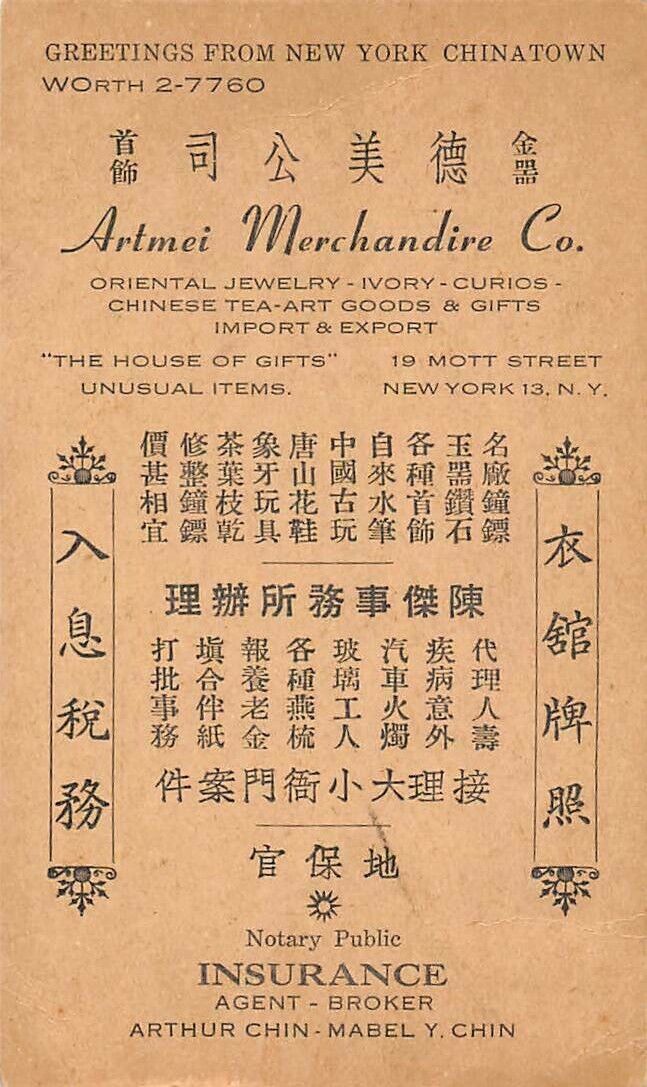 GREETINGS FROM NEW YORK CHINATOWN
WORTH 2-7760
金器
德美公司
首飾
Artmei Merchandire Co.
ORIENTAL JEWELRY - IVORY - CURIOS -
CHINESE TEA - ART GOODS & GIFTS
IMPORT & EXPORT
"THE HOUSE OF GIFTS"
UNUSUAL ITEMS.
19 MOTT STREET
NEW YORK 13, N. Y.
衣舘牌照
名廠鐘鏢
玉器鑽石
各種首飾
自來水筆
中國古玩
唐山花鞋
象牙玩具
茶葉枝乾
修整鐘鏢
價甚相宜
陳傑事務所辦理
代理人壽
疾病意外
汽車火燭
玻璃工人
各種燕梳
報養老金
塡合伴紙
打批事務
接理大小衙門案件
入息稅務
地保官
Notary Public
INSURANCE
AGENT - BROKER
ARTHUR CHIN - MABEL Y. CHIN